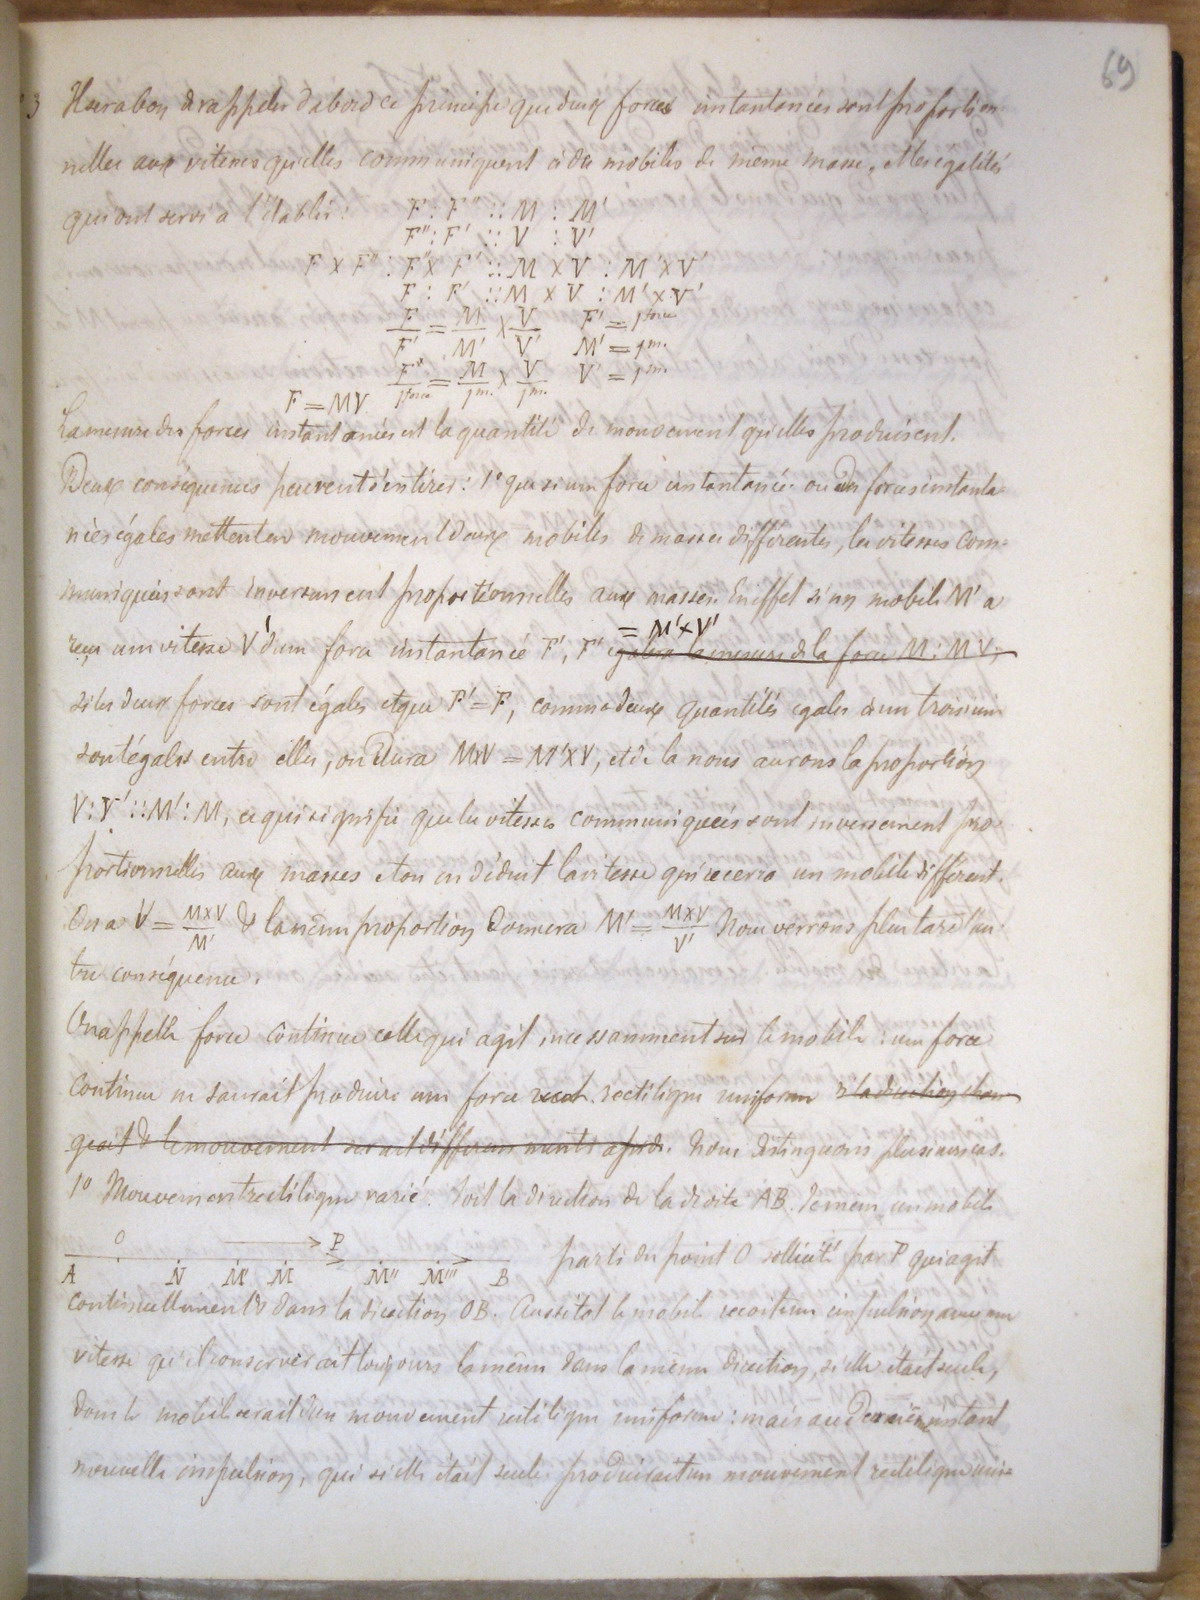 69
3 Il sera bon de rappeler d'abord ce principe que deux forces instantanées sont proportion-
nelles aux vitesses qu'elles communiquent à des mobiles de même masse, et les égalités
qui ont servi à l'établir :
F : F'' :: M : M'
F'' : F' :: V : V'
F × F'' : F'' × F' :: M × V : M' × V'
F : F' :: M × V : M' × V'
F/F' = M/M' × V/V' F' = 1 force
M' = 1 m.
F/1 force = M/1 m. × V/1 m. V' = 1 m.
F = MV
La mesure des forces instantanées est la quantité de mouvement qu'elles produisent.
Deux conséquences peuvent s'en tirer : 1° que si une force instantanée ou des forces instanta-
nées égales mettent en mouvement deux mobiles de masses différentes, les vitesses com-
muniquées sont inversement proportionnelles aux masses. En effet si un mobile M' a
= M'×V'
reçu une vitesse V' d'une force instantanée F', F' égalera la mesure de la force M : MV,
si les deux forces sont égales et que F' = F, comme deux quantités égales à une troisième
sont égales entre elles, on aura M×V = M'×V, et de là nous aurons la proportion
V : V' :: M' : M, ce qui signifie que les vitesses communiquées sont inversement pro-
portionnelles aux masses et on en déduit la vitesse que recevra un mobile différent.
On a V' = M×V/M' & la même proportion donnera M' = M×V/V' Nous verrons plus tard l'au-
tre conséquence.
On appelle force continue celle qui agit incessamment sur le mobile : une force
continue ne saurait produire une force rect. rectiligne uniforme si la direction chan-
geait & le mouvement serait différem. Nous distinguons plusieurs cas.
1° Mouvement rectiligne varié. Soit la direction de la droite AB. un mobile
O P
A N M' M M'' M''' B
parti du point O sollicité par P qui agit
continuellement & dans la direction OB. Aussitôt le mobile reçoit une impulsion avec une
vitesse qu'il conserverait toujours la même dans la même direction, si elle était seule,
donc le mobile serait d'un mouvement rectiligne uniforme : mais au instant
nouvelle impulsion, qui si elle était seule, produirait un mouvement rectiligne uni-